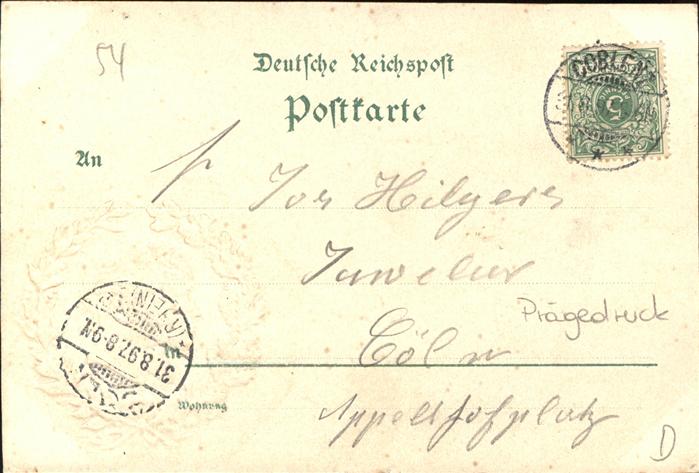 54
Deutsche Reichspost
Postkarte
COBLENZ
5
An
Jos Hilgers
Juwelier
Prägedruck
Cöln
(RHEIN)
31.8.97.8-9N.
Wohnung
Appellhofplatz
D